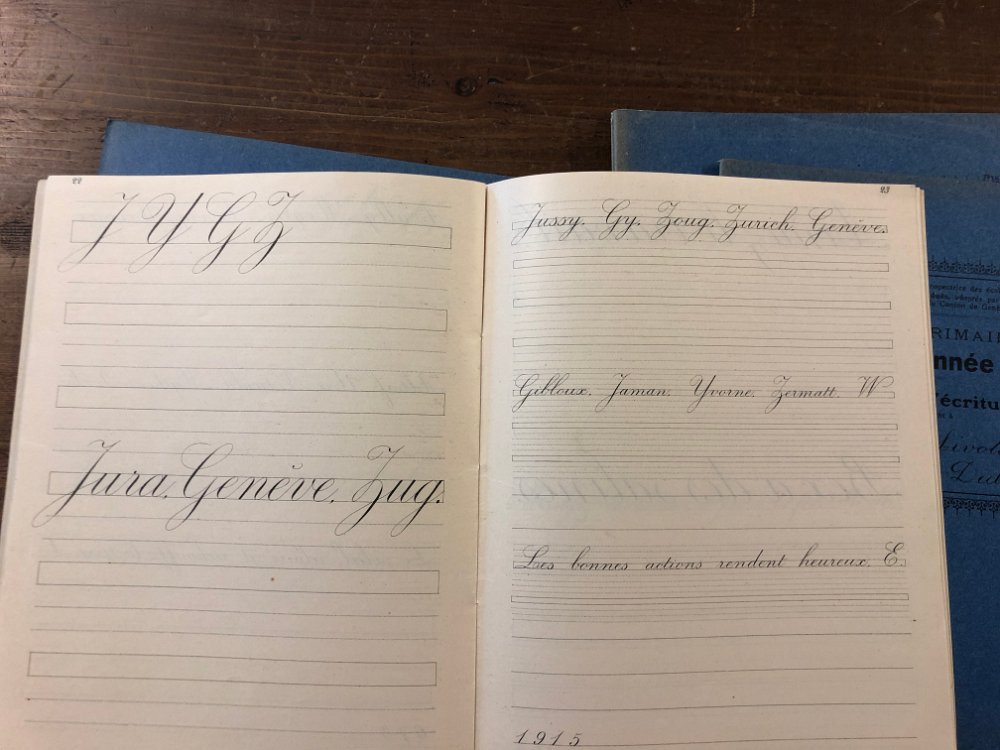 22
J Y G Z
Jura. Genève. Zug.
23
Jussy. Gy. Zoug. Zurich. Genève.
Gibloux. Jaman. Yvorne. Zermatt. W
Les bonnes actions rendent heureux. E
1915